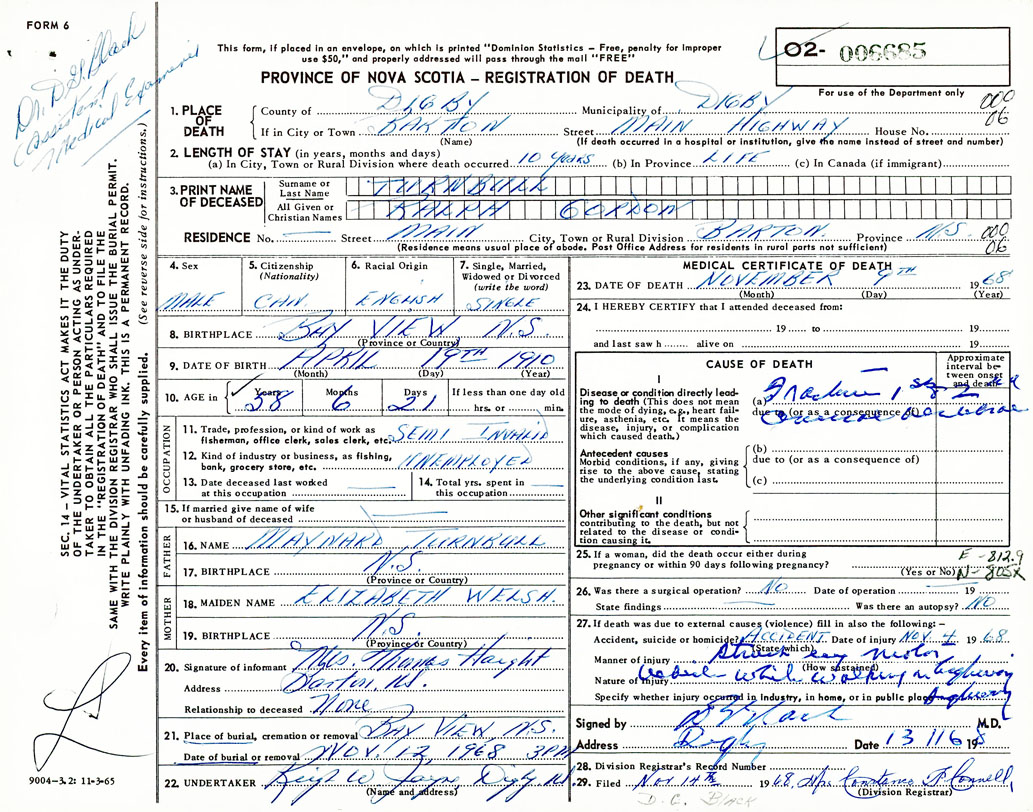 FORM 6
Dr. D. G. Black
Assistant
Medical Examiner
This form, if placed in an envelope, on which is printed "Dominion Statistics – Free, penalty for improper
use $50," and properly addressed will pass through the mail "FREE"
PROVINCE OF NOVA SCOTIA – REGISTRATION OF DEATH
02- 006685
For use of the Department only
000
06
1. PLACE OF DEATH
County of DIGBY Municipality of DIGBY
If in City or Town BARTON Street MAIN HIGHWAY House No.
(Name) (If death occurred in a hospital or institution, give the name instead of street and number)
2. LENGTH OF STAY (in years, months and days)
(a) In City, Town or Rural Division where death occurred 10 years (b) In Province LIFE (c) In Canada (if immigrant)
3. PRINT NAME OF DECEASED
Surname or Last Name TURNBULL
All Given or Christian Names RALPH GORDON
RESIDENCE No. Street MAIN City, Town or Rural Division BARTON Province N.S. 000
06
(Residence means usual place of abode. Post Office Address for residents in rural parts not sufficient)
4. Sex
MALE
5. Citizenship
(Nationality)
CAN.
6. Racial Origin
ENGLISH
7. Single, Married,
Widowed or Divorced
(write the word)
SINGLE
8. BIRTHPLACE BAY VIEW N.S.
(Province or Country)
9. DATE OF BIRTH APRIL 19TH 1910
(Month) (Day) (Year)
10. AGE in Years 58 Months 6 Days 21 If less than one day
hrs. or min.
OCCUPATION
11. Trade, profession, or kind of work as
fisherman, office clerk, sales clerk, etc. SEMI INVALID
12. Kind of industry or business, as fishing,
bank, grocery store, etc. UNEMPLOYED
13. Date deceased last worked
at this occupation
14. Total yrs. spent in
this occupation
15. If married give name of wife
or husband of deceased
FATHER
16. NAME MAYNARD TURNBULL
17. BIRTHPLACE N.S.
(Province or Country)
MOTHER
18. MAIDEN NAME ELIZABETH WELSH.
19. BIRTHPLACE N.S.
(Province or Country)
20. Signature of informant Mrs. Thomas Haight
Address Barton, N.S.
Relationship to deceased None
21. Place of burial, cremation or removal BAY VIEW, N.S.
Date of burial or removal NOV. 12, 1968 3PM
22. UNDERTAKER W. Jayne, Digby N.S.
(Name and address)
MEDICAL CERTIFICATE OF DEATH
23. DATE OF DEATH NOVEMBER 9TH 1968
(Month) (Day) (Year)
24. I HEREBY CERTIFY that I attended deceased from:
19 to 19
and last saw h alive on 19
CAUSE OF DEATH
Approximate
interval be-
tween onset
and death
I
Disease or condition directly lead-
ing to death (This does not mean
the mode of dying, e.g., heart fail-
ure, asthenia, etc. it means the
disease, injury, or complication
which caused death.)
(a) Fracture
due to (or as a consequence of)
Antecedent causes
Morbid conditions, if any, giving
rise to the above cause, stating
the underlying condition last.
(b)
due to (or as a consequence of)
(c)
II
Other significant conditions
contributing to the death, but not
related to the disease or condi-
tion causing it.
25. If a woman, did the death occur either during
pregnancy or within 90 days following pregnancy?
(Yes or No)
E -812.9
N- 805X
26. Was there a surgical operation? No Date of operation 19
State findings Was there an autopsy? NO
27. If death was due to external causes (violence) fill in also the following: –
Accident, suicide or homicide? ACCIDENT. Date of injury NOV 9 1968
(State which)
Manner of injury struck by motor
(How sustained)
Nature of injury vehicle while walking on highway
Specify whether injury occurred in Industry, in home, or in public place highway
Signed by D G Black M.D.
Address Digby Date 13 1168
28. Division Registrar's Record Number
29. Filed Nov 14th 1968, Mrs Constance F. Connell,
(Division Registrar)
D. G. BLACK
SEC. 14 – VITAL STATISTICS ACT MAKES IT THE DUTY
OF THE UNDERTAKER OR PERSON ACTING AS UNDER-
TAKER TO OBTAIN ALL THE PARTICULARS REQUIRED
IN THE "REGISTRATION OF DEATH" AND TO FILE THE
SAME WITH THE DIVISION REGISTRAR WHO SHALL ISSUE THE BURIAL PERMIT.
WRITE PLAINLY WITH UNFADING INK. THIS IS A PERMANENT RECORD.
Every item of information should be carefully supplied. (See reverse side for instructions.)
9004-3.2: 11-3-65